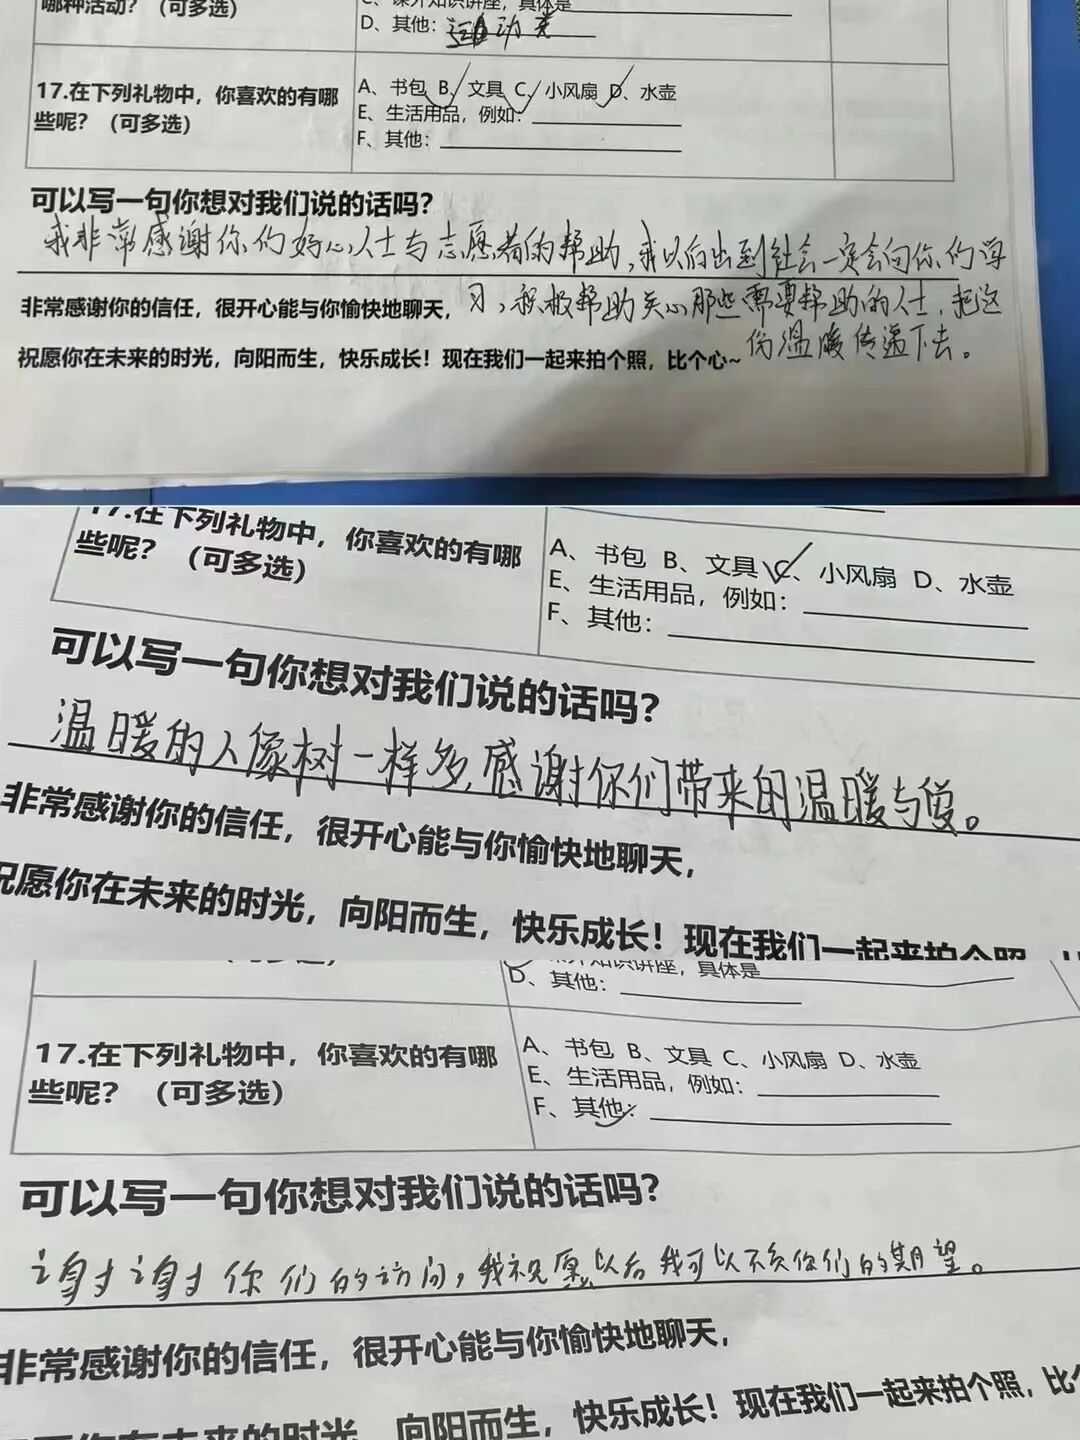 哪种活动？（可多选）
C、课外知识讲座，具体是
D、其他：运动类
17.在下列礼物中，你喜欢的有哪些呢？（可多选）
A、书包 B、文具 C、小风扇 D、水壶
E、生活用品，例如：
F、其他：
可以写一句你想对我们说的话吗？
我非常感谢你们好心人士与志愿者的帮助，我以后出到社会一定会向你们学
习，积极帮助关心那些需要帮助的人士，把这
份温暖传递下去。
非常感谢你的信任，很开心能与你愉快地聊天，
祝愿你在未来的时光，向阳而生，快乐成长！现在我们一起来拍个照，比个心~
17.在下列礼物中，你喜欢的有哪
些呢？（可多选）
A、书包 B、文具 C、小风扇 D、水壶
E、生活用品，例如：
F、其他：
可以写一句你想对我们说的话吗？
温暖的人像树一样多，感谢你们带来的温暖与爱。
非常感谢你的信任，很开心能与你愉快地聊天，
祝愿你在未来的时光，向阳而生，快乐成长！现在我们一起来拍个照，
（可多选）
课外知识讲座，具体是
D、其他：
17.在下列礼物中，你喜欢的有哪
些呢？（可多选）
A、书包 B、文具 C、小风扇 D、水壶
E、生活用品，例如：
F、其他：
可以写一句你想对我们说的话吗？
谢谢你们的访问，我祝愿以后我可以不负你们的期望。
非常感谢你的信任，很开心能与你愉快地聊天，
愿你在未来的时光，向阳而生，快乐成长！现在我们一起来拍个照，比个